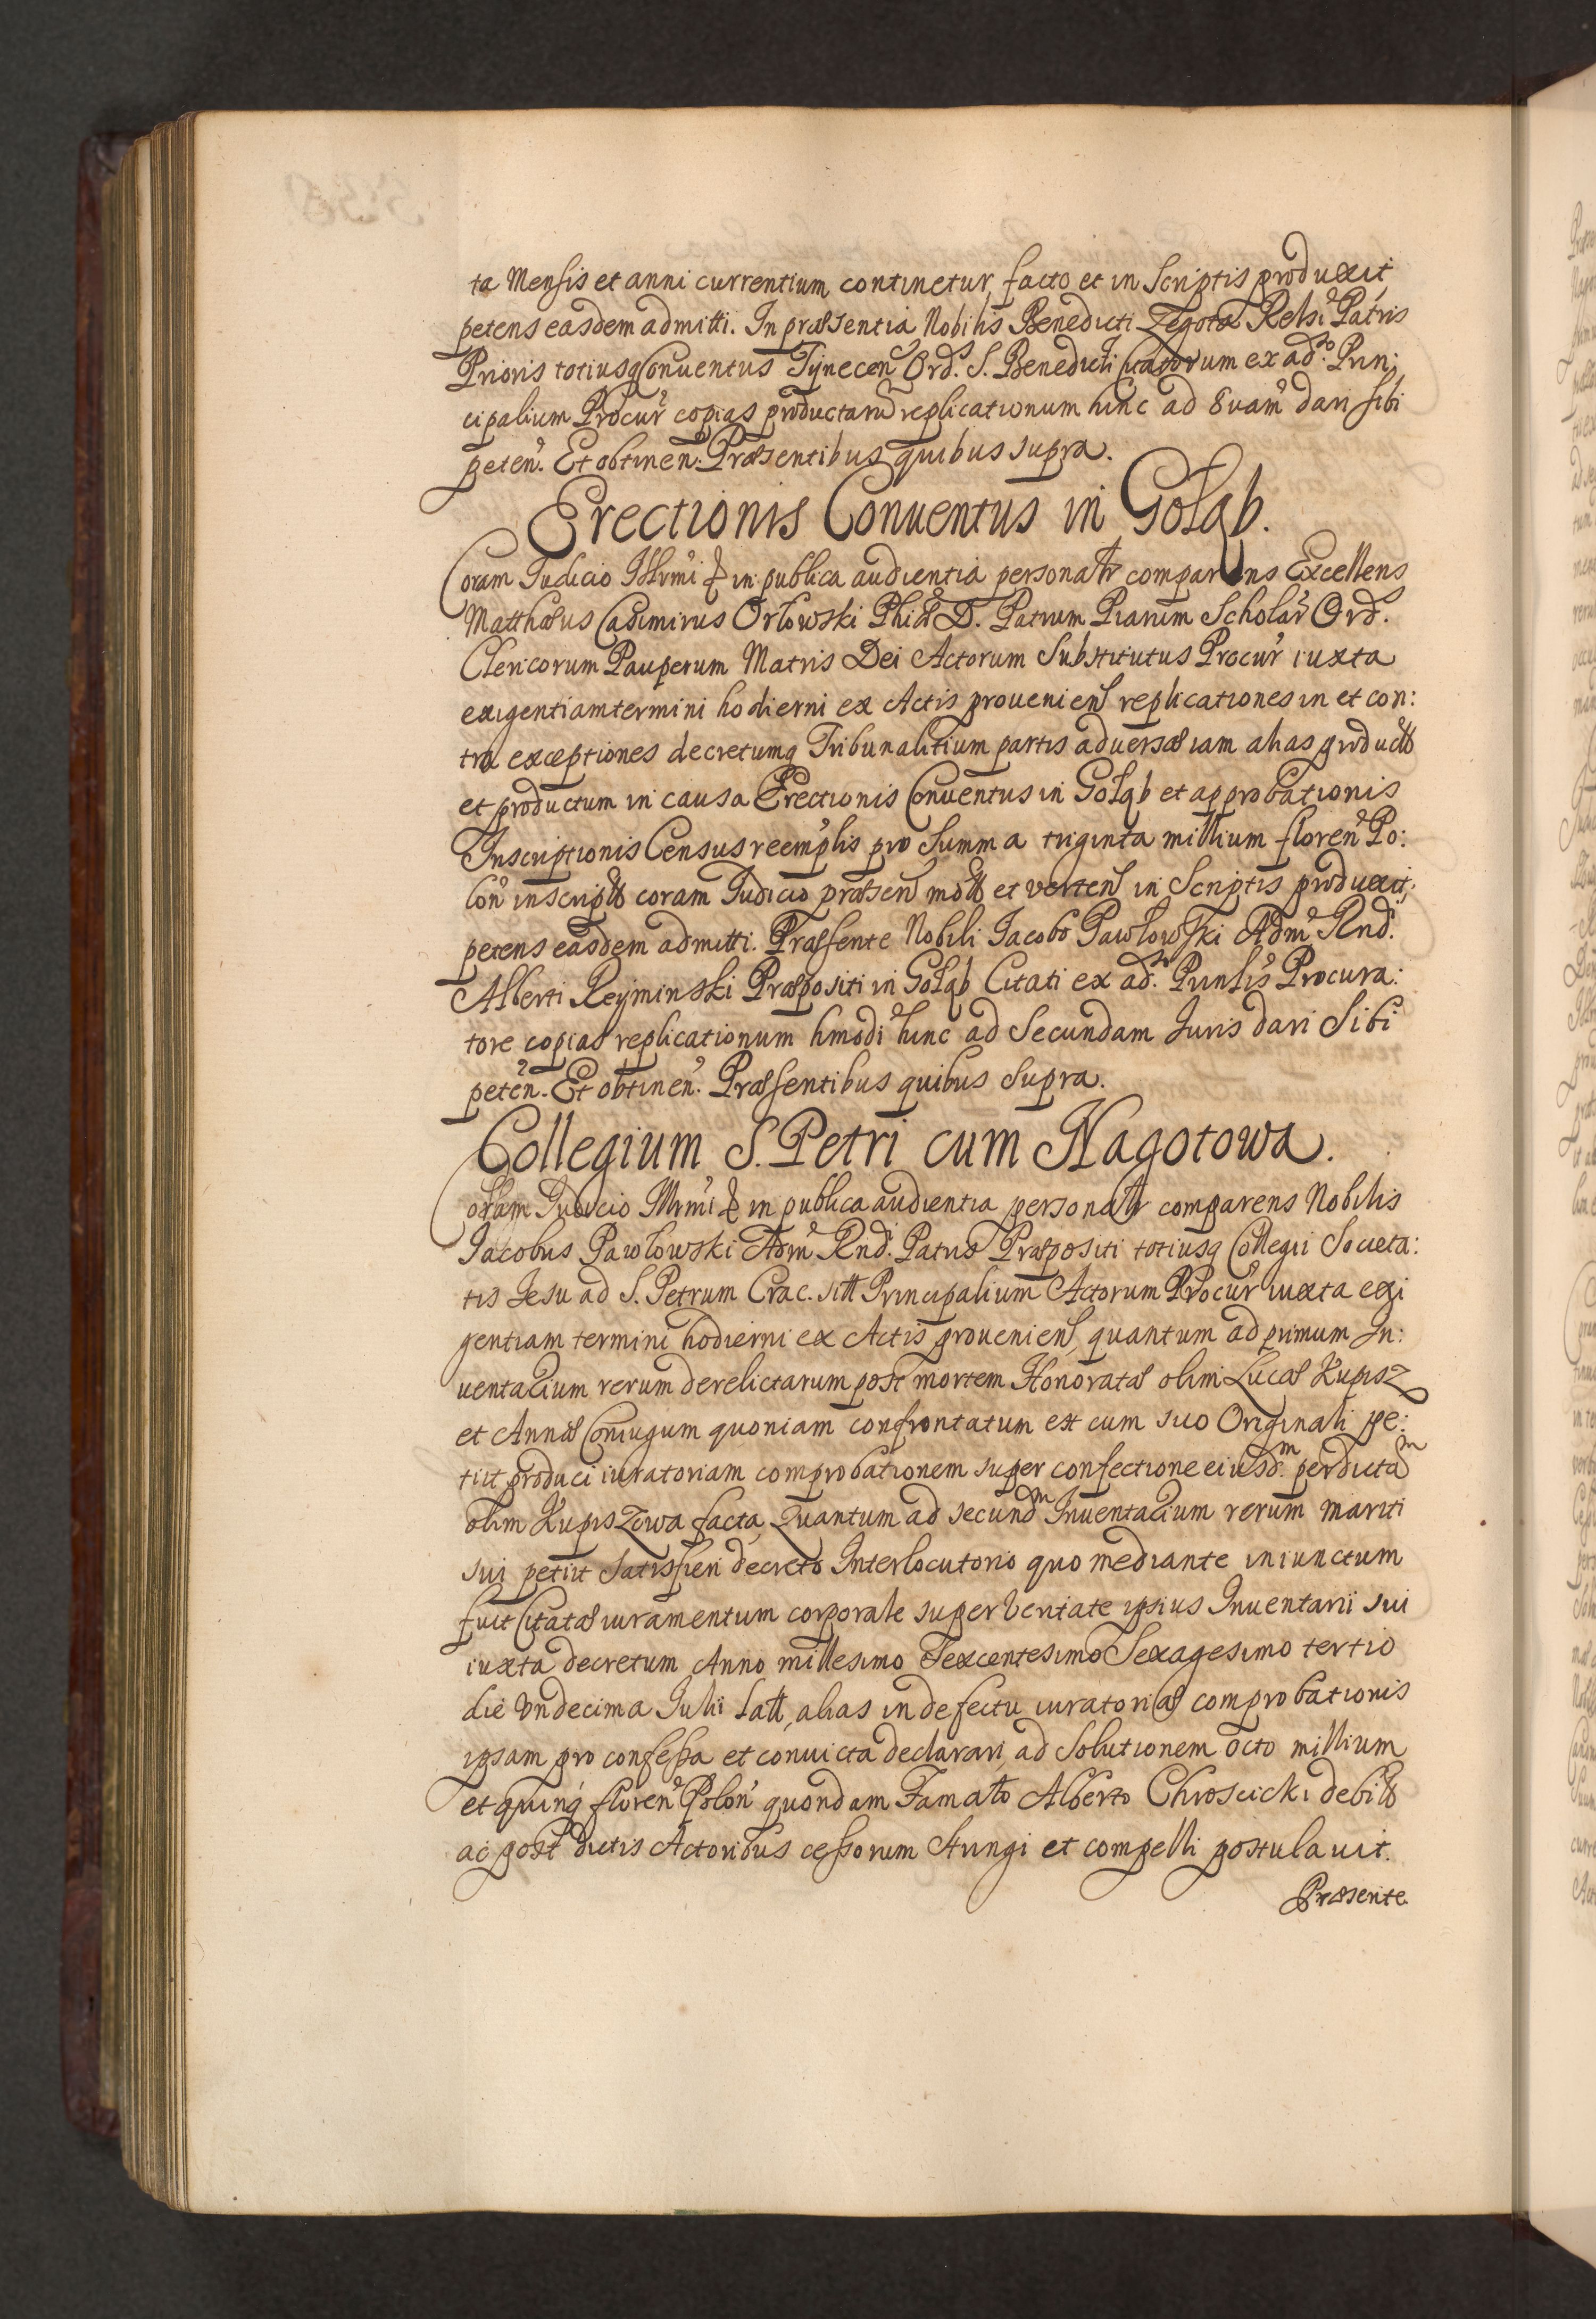 ta Mensis et anni currentium continetur, facto et in Scriptis produxit,
petens easdem admitti. In præsentia Nobilis Benedicti Zegota Relsi Patris
Prioris totiusq Conuentus Tynecen Ord. S. Benedicti Citatorum ex ad.so Prin:
cipalium Procur copias productaru replicationum hinc ad 8uam dari sibi
peten. Et obtinen. Præsentibus quibus supra.
Erectionis Conuentus in Gołąb.
Coram Iudicio Illrmi & in publica audientia personalr comparens Excellens
Matthæus Casimirus Orłowski Phiæ D. Patrum Piarum Scholar Ord.
Clericorum Pauperum Matris Dei Actorum Substitutus Procur iuxta
exigentiam termini hodierni ex Actis prouenien replicationes in et con:
tra exceptiones decretumq Tribunalitium partis aduersæ iam alias product
et productum in causa Erectionis Conuentus in Gołąb et approbationis
Inscriptionis Census reemplis pro Summa triginta millium floren Po:
lon inscript coram Iudicio præsen mott et verten in Scriptis produxit,
petens easdem admitti. Præsente Nobili Iacobo Pawłowski Adm Rnd.
Alberti Reyminski Præpositi in Gołąb Citati ex ad.so Prinlis Procura:
tore copias replicationum hmodi hinc ad Secundam Iuris dari Sibi
peten. Et obtinen. Præsentibus quibus Supra.
Collegium S. Petri cum Nagotowa.
Coram Iudicio Illrmi & in publica audientia personalr comparens Nobilis
Iacobus Pawłowski Adm Rnd. Patris Præpositi totiusq Collegii Societa:
tis Iesu ad S. Petrum Crac. sitt Principalium Actorum Procur iuxta exi
gentiam termini hodierni ex Actis prouenien, quantum ad primum In:
uentarium rerum derelictarum post mortem Honoratæ olim Lucæ Kupisz
et Annæ Coniugum quoniam confrontatum est cum suo Originali pe:
tiit produci iuratoriam comprobationem super confectione eiusd.m per dictam
olim Kupiszowa facta, Quantum ad secundm Inuentarium rerum mariti
sui petiit Satisfieri decreto Interlocutorio quo mediante iniunctum
fuit Citatæ iuramentum corporale super Veritate ipsius Inuentarii sui
iuxta decretum Anno millesimo Sexcentesimo Sexagesimo tertio
die Vndecima Iulii latt, alias in defectu iuratoriæ comprobationis
ipsam pro confessa et conuicta declarari, ad Solutionem octo millium
et quinq floren Polon quondam Famato Alberto Chroscicki debitt
ac post dictis Actoribus cessorum Stringi et compelli postulauit.
Præsente